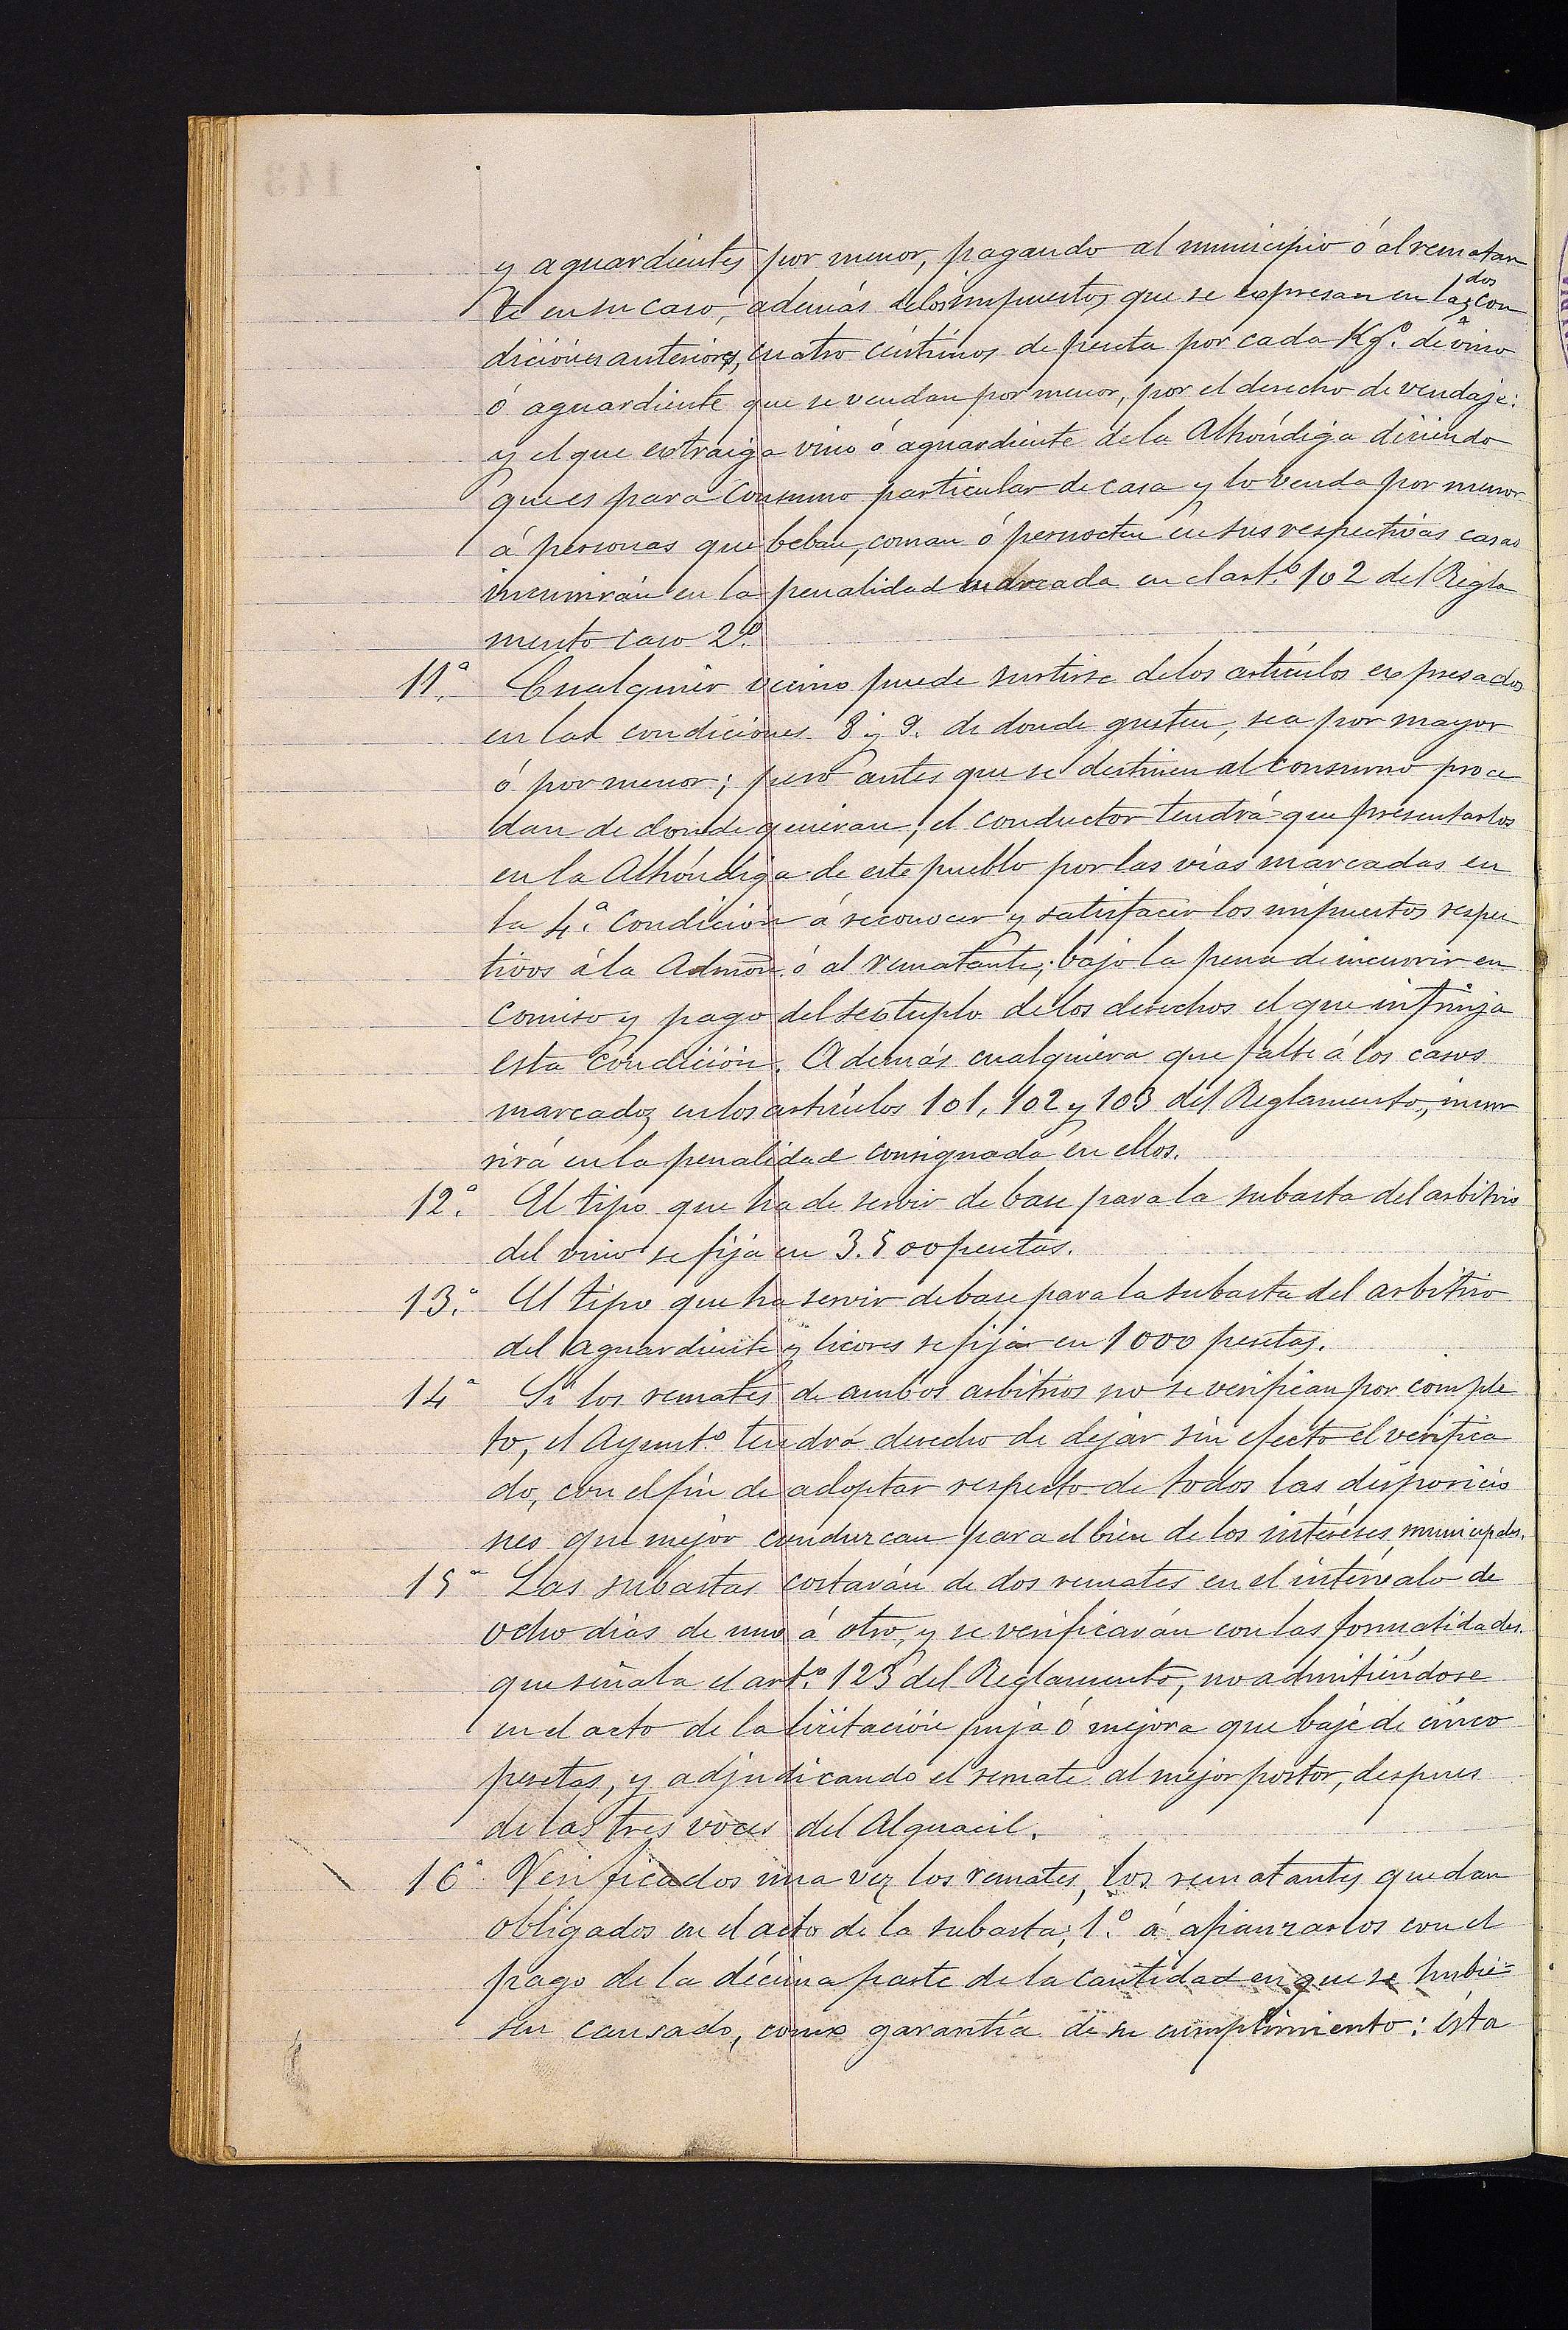 y aguardientes por menor, pagando al municipio ó al rematan
te en su caso, además de los impuestos que se expresan en las dos con
diciones anteriores, cuatro céntimos de peseta por cada Kgº. de vino
ó aguardiente que se vendan por menor, por el derecho de vendaje:
y el que extraiga vino ó aguardiente de la Alhóndiga diciendo
que es para consumo particular de casa y lo venda por menor
á personas que beban, coman ó pernocten en sus respectivas casas
incurrirán en la penalidad marcada en el artº. 102 del Regla
mento caso 2º.
11.ª Cualquier vecino puede surtirse de los artículos expresados
en las condiciones 8 y 9. de donde gusten, sea por mayor
ó por menor; pero antes que se destinen al consumo proce
dan de donde quieran, el conductor tendrá que presentarlos
en la Alhóndiga de este pueblo por las vías marcadas en
la 4.ª condición á reconocer y satisfacer los impuestos respec
tivos á la Admón. ó al rematante, bajo la pena de incurrir en
comiso y pago del sextuplo de los derechos el que infrinja
esta condición. Además cualquiera que falte á los casos
marcados en los artículos 101, 102 y 103 del Reglamento, incur
rirá en la penalidad consignada en ellos.
12.ª El tipo que ha de servir de base para la subasta del arbitrio
del vino se fija en 3.500 pesetas.
13.ª El tipo que ha servir de base para la subasta del arbitrio
del aguardiente y licores se fija en 1000 pesetas.
14ª Si los remates de ambos arbitrios no se verifican por comple
to, el Ayuntº. tendrá derecho de dejar sin efecto el verifica
do, con el fin de adoptar respecto de todos las disposicio
nes que mejor conduzcan para el bien de los intereses municipales.
15ª Las subastas costarán de dos remates en el intérvalo de
ocho días de uno á otro, y se verificarán con las formalidades.
que señala el artº. 123 del Reglamento, no admitiéndose
en el acto de la licitación puja ó mejora que baje de cinco
pesetas, y adjudicando el remate al mejor postor, despues
de las tres voces del Alguacil.
16ª Verificados una vez los remates, los rematantes quedan
obligados en el acto de la subasta; 1º. á afianzarlos con el
pago de la décima parte de la cantidad en que se hubie-
sen causado, como garantía de su cumplimiento: ésta